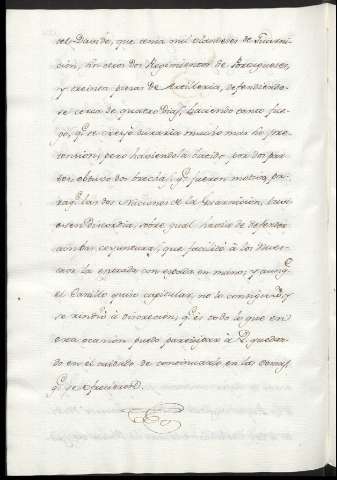 de Guarni-
cion, con otros dos Regimientos de Portugueses,
y treinta piezas de Artilleria, defendiendo-
se cerca de quatro dias, haciendo tanto fue-
go, q.e se creyó duraria mucho mas la pre-
tension; pero haviendola batido por dos par-
tes, abierto dos brechas, q.e fueron motivo, pa-
ra q.e las dos Naciones de la Guarnicion, tuvie-
sen Discordia, sobre qual havia de defender
ambas, que facilitó á los nues-
tros la entrada con espada en mano; y aunq.e
el Castillo quiso capitular, no se consiguió, y
se rindió á discrecion, q.e es todo lo que en
esta ocasion puedo participar á V. quedan-
do en el cuidado de continuarlo en las demas,
q.e se ofrecieren.